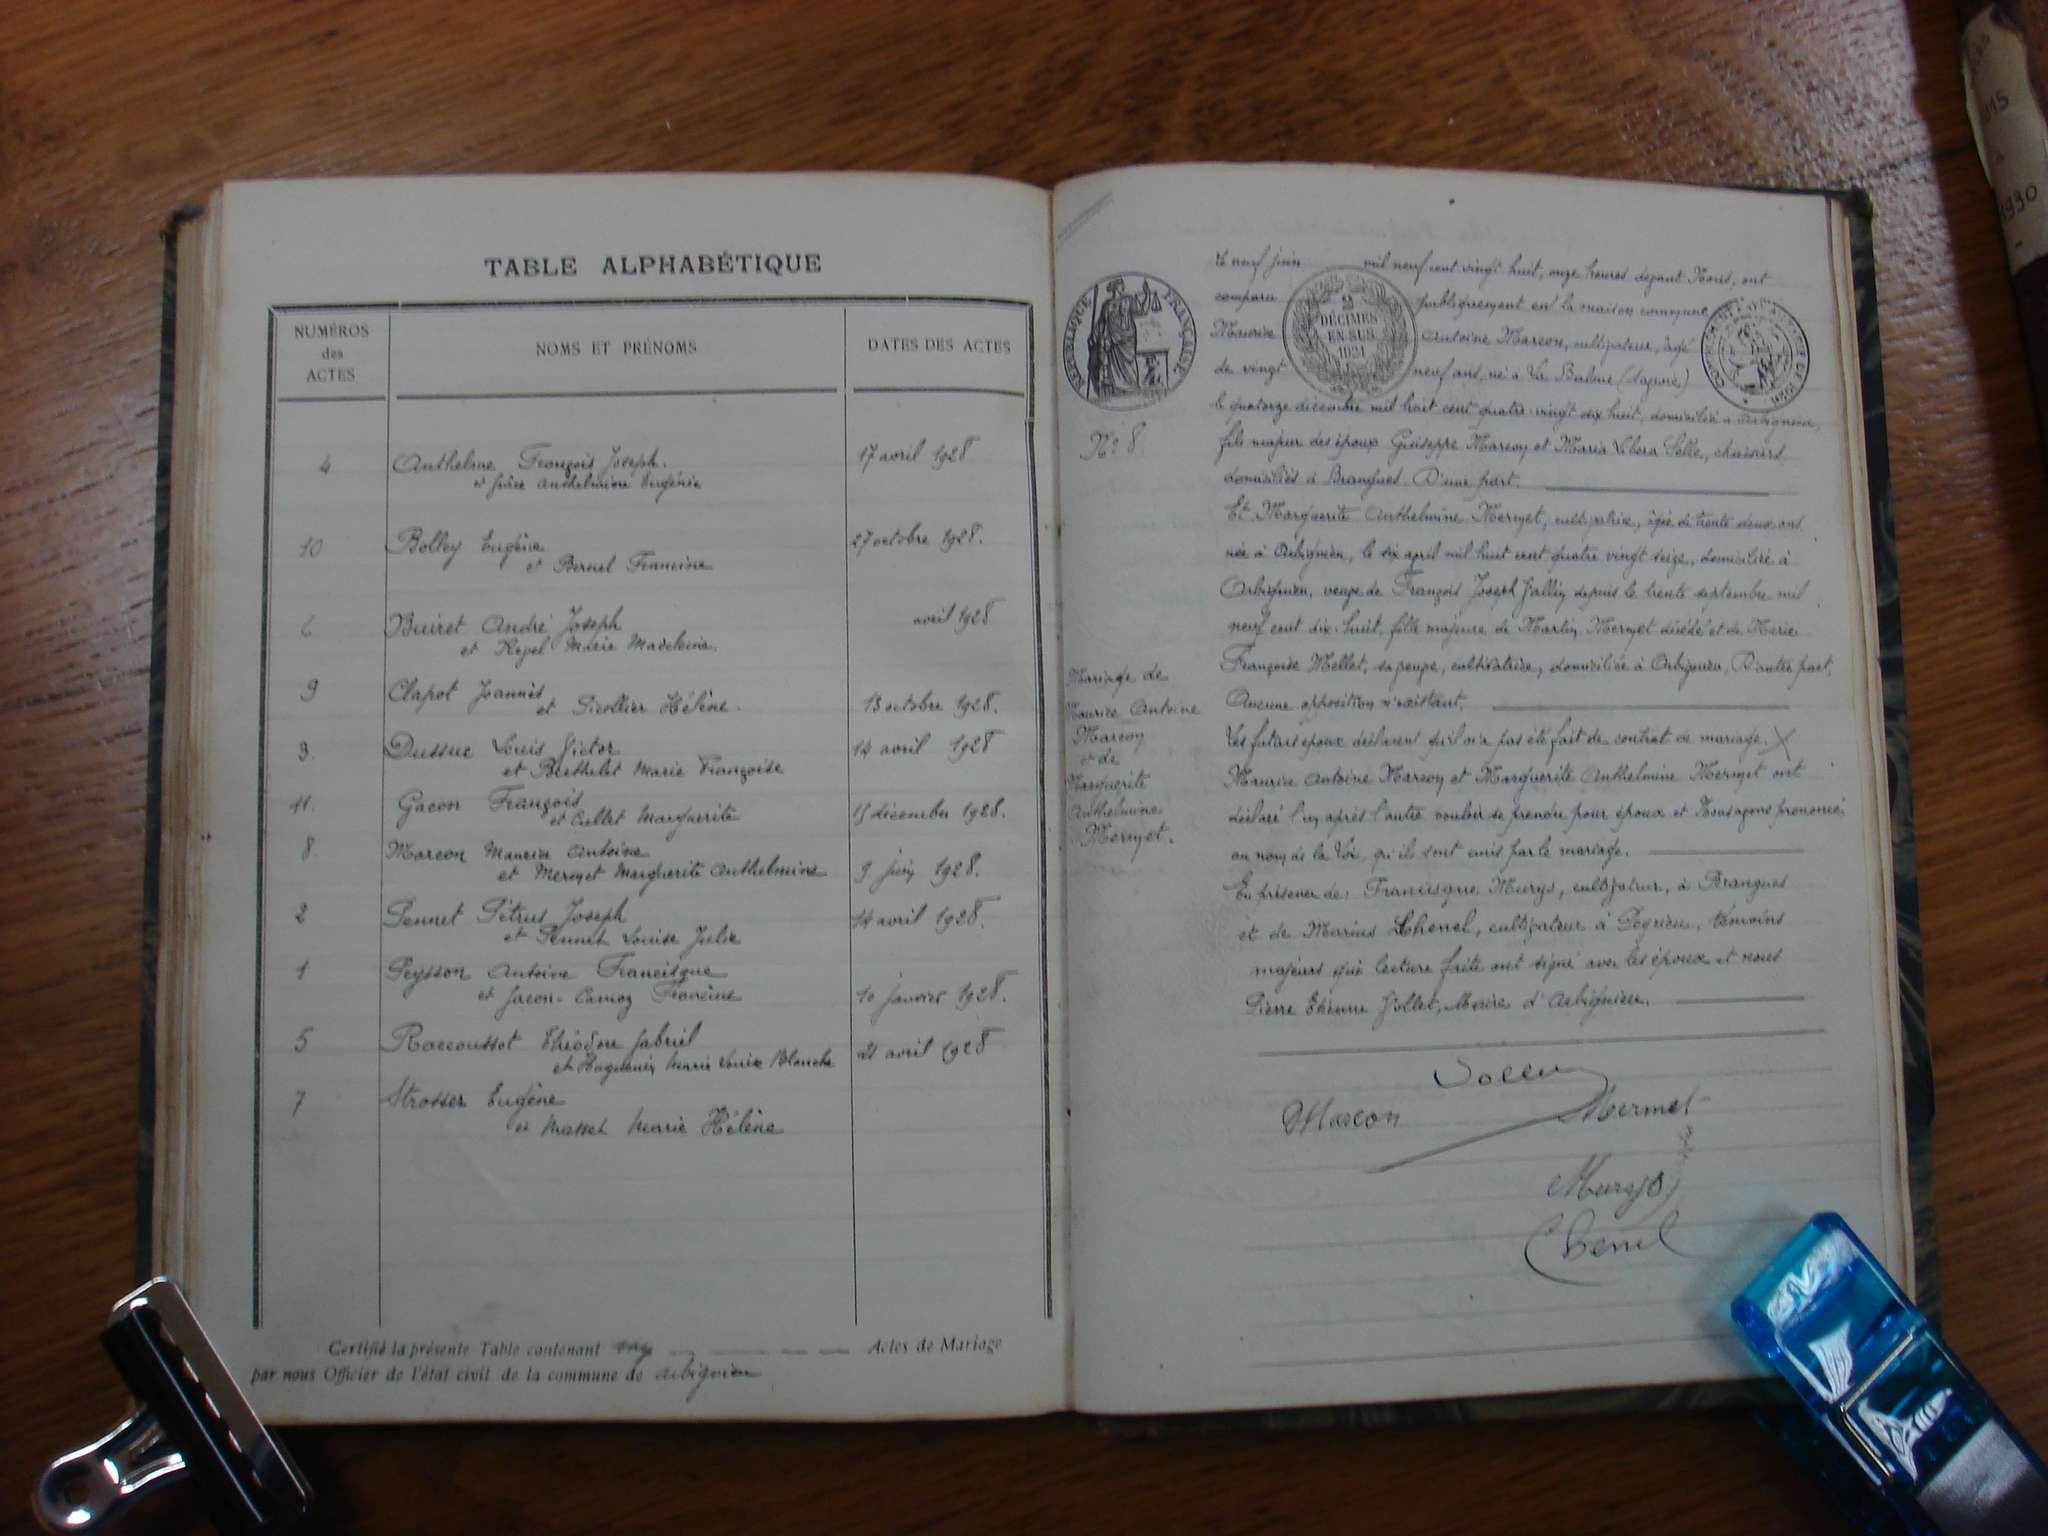 TABLE ALPHABÉTIQUE
NUMÉROS
des
ACTES
NOMS ET PRÉNOMS
DATES DES ACTES
4 Anthelme François Joseph. 17 avril 1928
et Anthelmine Eugénie
10 Bolley Eugène 27 octobre 1928.
et Bernel Francine
6 Buiret André Joseph avril 1928
et Repel Marie Madeleine.
9 Clapot Joannès
et Sicollier Hélène. 13 octobre 1928.
3. Dussuc Louis Victor 14 avril 1928
et Berthelet Marie Françoise
11. Gacon François
et Cullet Marguerite 15 décembre 1928.
8. Marcon Maurice Antoine
et Mermet Marguerite Anthelmine 9 juin 1928.
2 Pennet Pétrus Joseph 14 avril 1928.
et Pennet Louise Julie
1 Peysson Antoine Francisque
et Jacon-Carroz Francine 10 janvier 1928.
5 Raccoussot Théodore Gabriel 21 avril 1928
et Huguenin Marie Louise Blanche
7 Strosser Eugène
et Masset Marie Hélène
Certifié la présente Table contenant onze Actes de Mariage
par nous Officier de l'état civil de la commune de Arbignieu
RÉPUBLIQUE FRANÇAISE
2
DÉCIMES
EN SUS
1921
Le neuf juin mil neuf cent vingt huit, onze heures devant Nous, ont
comparu publiquement en la maison commune
Maurice Antoine Marcon, cultivateur, âgé
de vingt neuf ans, né à La Balme (Savoie)
le quatorze décembre mil huit cent quatre-vingt dix huit, domicilié à Arbignieu,
fils majeur des époux Guiseppe Marcon et Maria Libera Selle, chaisiers
domiciliés à Brangues. D'une part.
Et Marguerite Anthelmine Mermet, cultivatrice, âgée de trente deux ans
née à Arbignieu, le six avril mil huit cent quatre vingt seize, domiciliée à
Arbignieu, veuve de François Joseph Jallin depuis le trente septembre mil
neuf cent dix-huit, fille majeure de Martin Mermet décédé et de Marie
Françoise Mellet, sa veuve, cultivatrice, domiciliée à Arbignieu, D'autre part,
Aucune opposition n'existant.
Les futurs époux déclarent qu'il n'a pas été fait de contrat de mariage.
Maurice Antoine Marcon et Marguerite Anthelmine Mermet ont
déclaré l'un après l'autre vouloir se prendre pour époux et Nous avons prononcé
au nom de la Loi, qu'ils sont unis par le mariage.
En présence de: Francisque Murys, cultivateur, à Brangues
et de Marius Chenel, cultivateur à Peyrieu, témoins
majeurs qui lecture faite ont signé avec les époux et nous
Pierre Etienne Jollet, Maire d'Arbignieu.
N° 8
Mariage de
Maurice Antoine
Marcon
et de
Marguerite
Anthelmine
Mermet.
Marcon
Mermet
Murys
Chenel